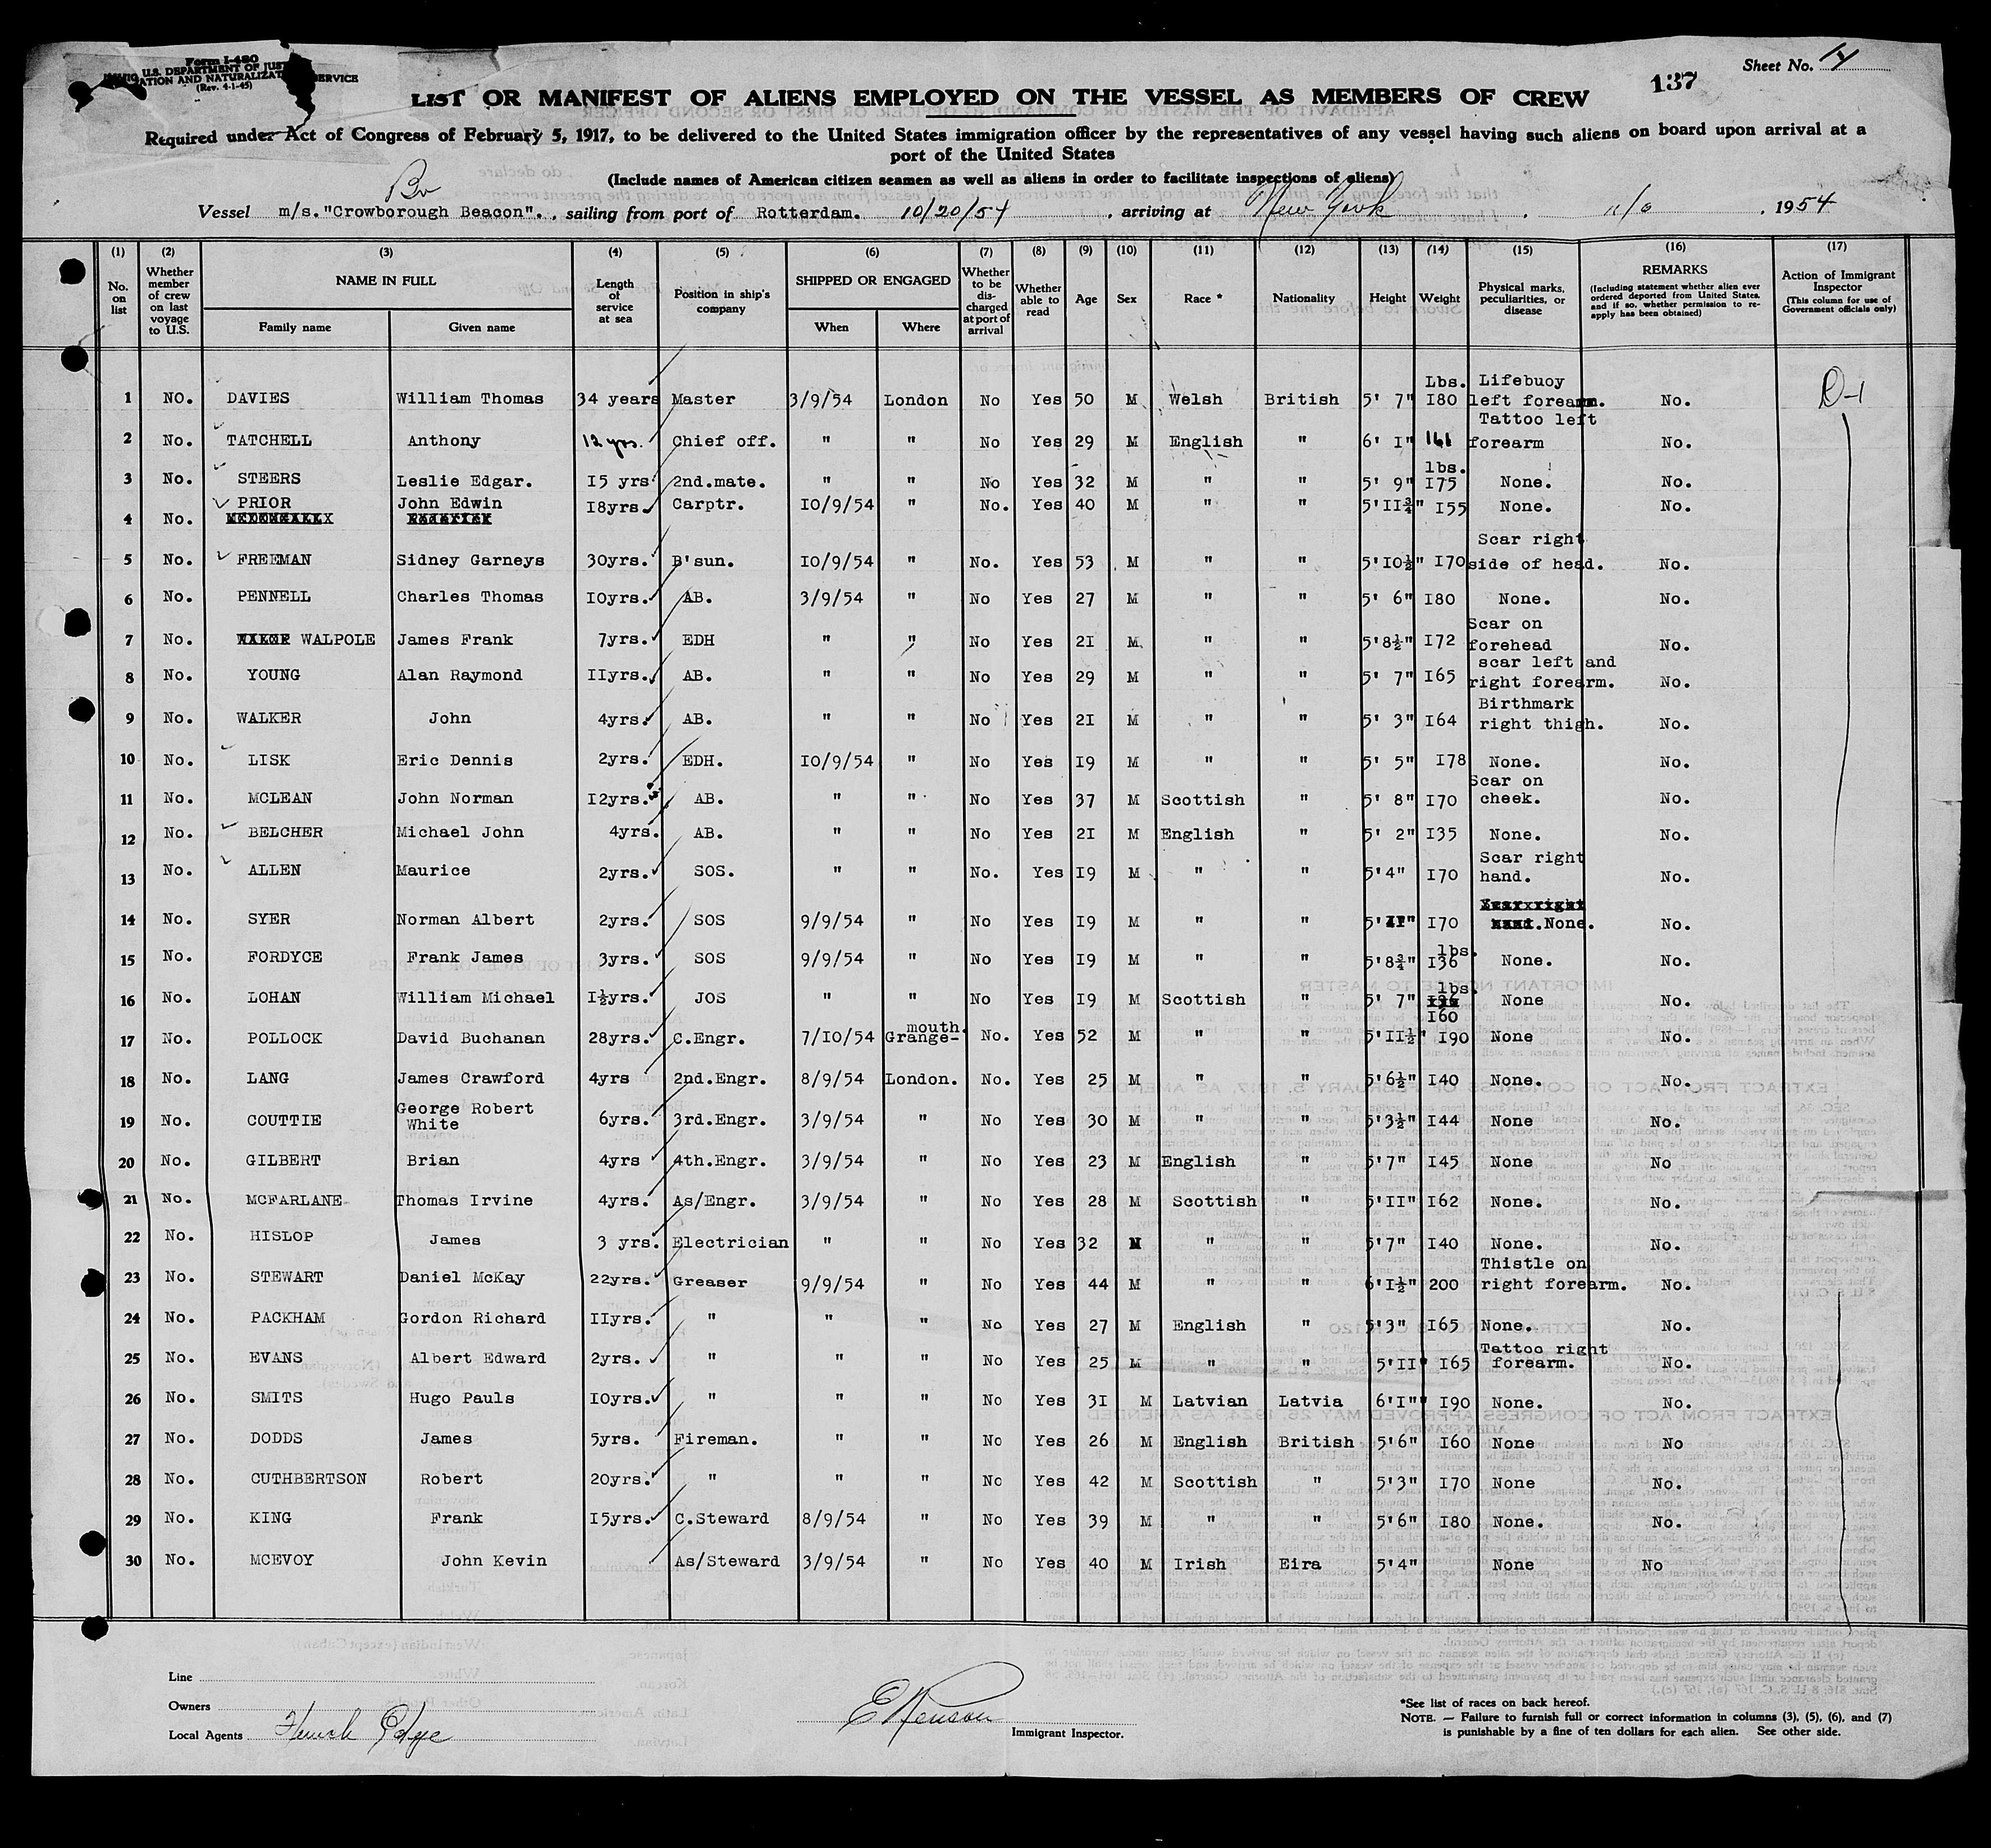 Form I-480
U.S. DEPARTMENT OF JUST
ATION AND NATURALIZAT SERVICE
(Rev. 4-1-45)
137
Sheet No.
LIST OR MANIFEST OF ALIENS EMPLOYED ON THE VESSEL AS MEMBERS OF CREW
Required under Act of Congress of February 5, 1917, to be delivered to the United States immigration officer by the representatives of any vessel having such aliens on board upon arrival at a
port of the United States
(Include names of American citizen seamen as well as aliens in order to facilitate inspections of aliens)
Br
Vessel m/s."Crowborough Beacon"., sailing from port of Rotterdam. 10/20/54, arriving at New York, 1954
(1) (2) (3) (4) (5) (6) (7) (8) (9) (10) (11) (12) (13) (14) (15) (16) (17)
No. on list | Whether member of crew on last voyage to U.S. | NAME IN FULL | Family name | Given name | Length of service at sea | Position in ship's company | SHIPPED OR ENGAGED | When | Where | Whether to be discharged at port of arrival | Whether able to read | Age | Sex | Race * | Nationality | Height | Weight | Physical marks, peculiarities, or disease | REMARKS (Including statement whether alien ever ordered deported from United States, and if so, whether permission to re-apply has been obtained) | Action of Immigrant Inspector (This column for use of Government officials only)
1 NO. DAVIES William Thomas 34 years Master 3/9/54 London No Yes 50 M Welsh British 5' 7" Lbs. I80 Lifebuoy left forearm. No. D-1
2 No. TATCHELL Anthony 12 yrs. Chief off. " " No Yes 29 M English " 6' I" 161 Tattoo left forearm No.
3 No. STEERS Leslie Edgar. I5 yrs 2nd.mate. " " No Yes 32 M " " 5' 9" lbs. I75 None. No.
4 No. PRIOR John Edwin I8yrs. Carptr. I0/9/54 " No. Yes 40 M " " 5'II¾" I55 None. No.
5 No. FREEMAN Sidney Garneys 30yrs. B'sun. I0/9/54 " No. Yes 53 M " " 5'I0½" I70 Scar right side of head. No.
6 No. PENNELL Charles Thomas I0yrs. AB. 3/9/54 " No Yes 27 M " " 5' 6" I80 None. No.
7 No. WALPOLE James Frank 7yrs. EDH " " No Yes 2I M " " 5'8½" I72 Scar on forehead No.
8 No. YOUNG Alan Raymond IIyrs. AB. " " No Yes 29 M " " 5' 7" I65 scar left and right forearm. No.
9 No. WALKER John 4yrs. AB. " " No Yes 2I M " " 5' 3" I64 Birthmark right thigh. No.
10 No. LISK Eric Dennis 2yrs. EDH. I0/9/54 " No Yes I9 M " " 5' 5" I78 None. No.
11 No. MCLEAN John Norman I2yrs. AB. " " No Yes 37 M Scottish " 5' 8" I70 Scar on cheek. No.
12 No. BELCHER Michael John 4yrs. AB. " " No Yes 2I M English " 5' 2" I35 None. No.
13 No. ALLEN Maurice 2yrs. SOS. " " No. Yes I9 M " " 5'4" I70 Scar right hand. No.
14 No. SYER Norman Albert 2yrs. SOS 9/9/54 " No Yes I9 M " " 5' I70 None. No.
15 No. FORDYCE Frank James 3yrs. SOS 9/9/54 " No Yes I9 M " " 5'8¾" lbs. I36 None. No.
16 No. LOHAN William Michael I½yrs. JOS " " No Yes I9 M Scottish " 5' 7" lbs. I60 None No.
17 No. POLLOCK David Buchanan 28yrs. C.Engr. 7/I0/54 Grange-mouth. No. Yes 52 M " " 5'II½" I90 None No.
18 No. LANG James Crawford 4yrs 2nd.Engr. 8/9/54 London. No. Yes 25 M " " 5'6½" I40 None. No.
19 No. COUTTIE George Robert White 6yrs. 3rd.Engr. 3/9/54 " No Yes 30 M " " 5'3½" I44 None No.
20 No. GILBERT Brian 4yrs 4th.Engr. 3/9/54 " No Yes 23 M English " 5'7" I45 None No
21 No. MCFARLANE Thomas Irvine 4yrs. As/Engr. 3/9/54 " No Yes 28 M Scottish " 5'II" I62 None. No.
22 No. HISLOP James 3 yrs. Electrician " " No Yes 32 M " " 5'7" I40 None. No.
23 No. STEWART Daniel McKay 22yrs. Greaser 9/9/54 " No Yes 44 M " " 6'I½" 200 Thistle on right forearm. No.
24 No. PACKHAM Gordon Richard IIyrs. " " " No Yes 27 M English " 5'3" I65 None. No.
25 No. EVANS Albert Edward 2yrs. " " " No Yes 25 M " " 5'II" I65 Tattoo right forearm. No.
26 No. SMITS Hugo Pauls I0yrs. " " " No Yes 3I M Latvian Latvia 6'I" I90 None. No.
27 No. DODDS James 5yrs. Fireman. " " No Yes 26 M English British 5'6" I60 None No
28 No. CUTHBERTSON Robert 20yrs. " " " No Yes 42 M Scottish " 5'3" I70 None No.
29 No. KING Frank I5yrs. C.Steward 8/9/54 " No Yes 39 M " " 5'6" I80 None. No.
30 No. MCEVOY John Kevin As/Steward 3/9/54 " No Yes 40 M Irish Eira 5'4" None No
Line
Owners
Local Agents
Immigrant Inspector.
*See list of races on back hereof.
NOTE. — Failure to furnish full or correct information in columns (3), (5), (6), and (7)
is punishable by a fine of ten dollars for each alien. See other side.